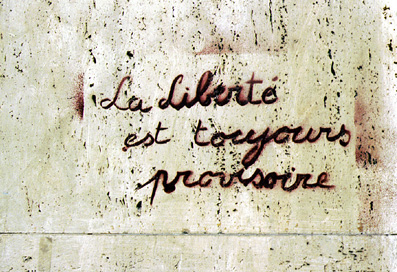 La liberté
est toujours
provisoire